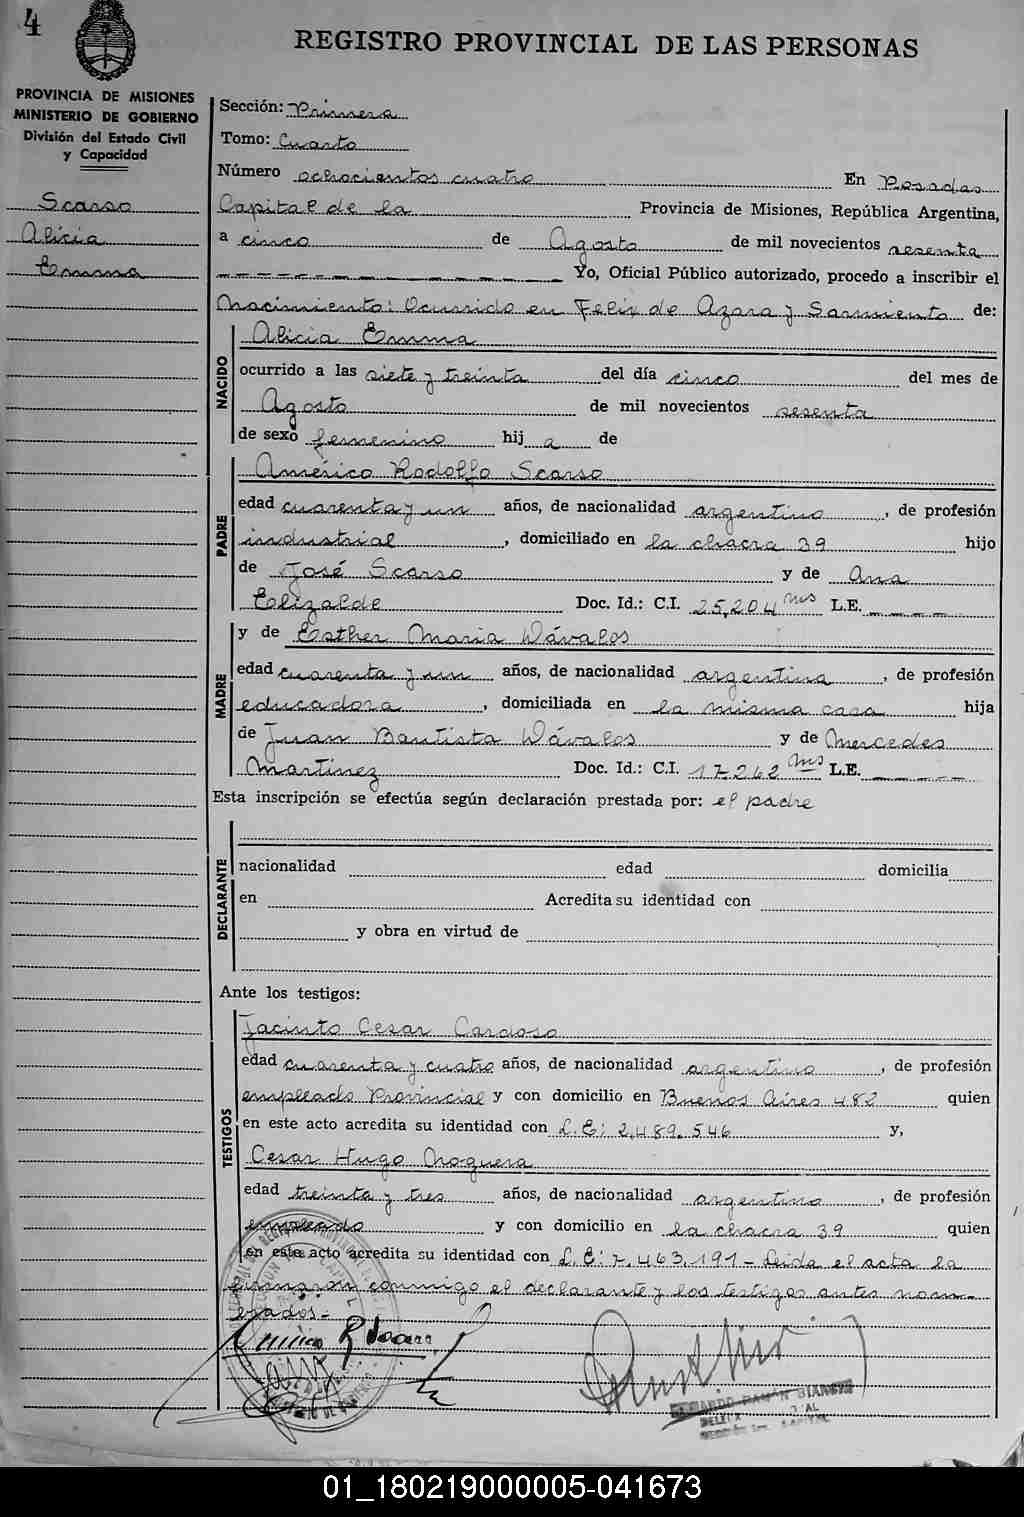 4
REGISTRO PROVINCIAL DE LAS PERSONAS
PROVINCIA DE MISIONES
MINISTERIO DE GOBIERNO
División del Estado Civil
y Capacidad
Scarso
Alicia
Emma
Sección: Primera
Tomo: Cuarto
Número ochocientos cuatro En Posadas
Capital de la Provincia de Misiones, República Argentina,
a cinco de Agosto de mil novecientos sesenta
Yo, Oficial Público autorizado, procedo a inscribir el
Nacimiento: Ocurrido en Felix de Azara y Sarmiento de:
NACIDO
Alicia Emma
ocurrido a las siete y treinta del día cinco del mes de
Agosto de mil novecientos sesenta
de sexo femenino hij a de
PADRE
Américo Rodolfo Scarso
edad cuarenta y un años, de nacionalidad argentino, de profesión
industrial, domiciliado en la chacra 39 hijo
de José Scarso y de Ana
Elizalde Doc. Id.: C.I. 25,204 Mns L.E.
MADRE
y de Esther Maria Dávalos
edad cuarenta y un años, de nacionalidad argentina, de profesión
educadora, domiciliada en la misma casa hija
de Juan Bautista Dávalos y de Mercedes
Martinez Doc. Id.: C.I. 17262 Mns L.E.
Esta inscripción se efectúa según declaración prestada por: el padre
DECLARANTE
nacionalidad edad domicilia
en Acredita su identidad con
y obra en virtud de
Ante los testigos:
TESTIGOS
Jacinto Cesar Cardoso
edad cuarenta y cuatro años, de nacionalidad argentino, de profesión
empleado Provincial y con domicilio en Buenos Aires 482 quien
en este acto acredita su identidad con L.E: 2,489.546 y,
Cesar Hugo Noguera
edad treinta y tres años, de nacionalidad argentino, de profesión
empleado y con domicilio en la chacra 39 quien
en este acto acredita su identidad con L.E: 7.463.191 - Leida el acta la
firmaron conmigo el declarante y los testigos antes nom-
brados.-
01_180219000005-041673